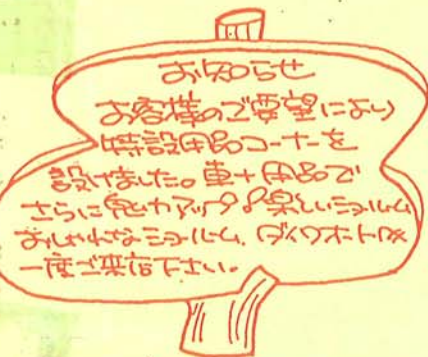 お知らせ
お客様のご要望により
特設用品コーナーを
設けました。車+用品で
さらに魅力アップ!楽しいショールーム
おしゃれなショールーム、ダイワオートDX
一度ご来店下さい。